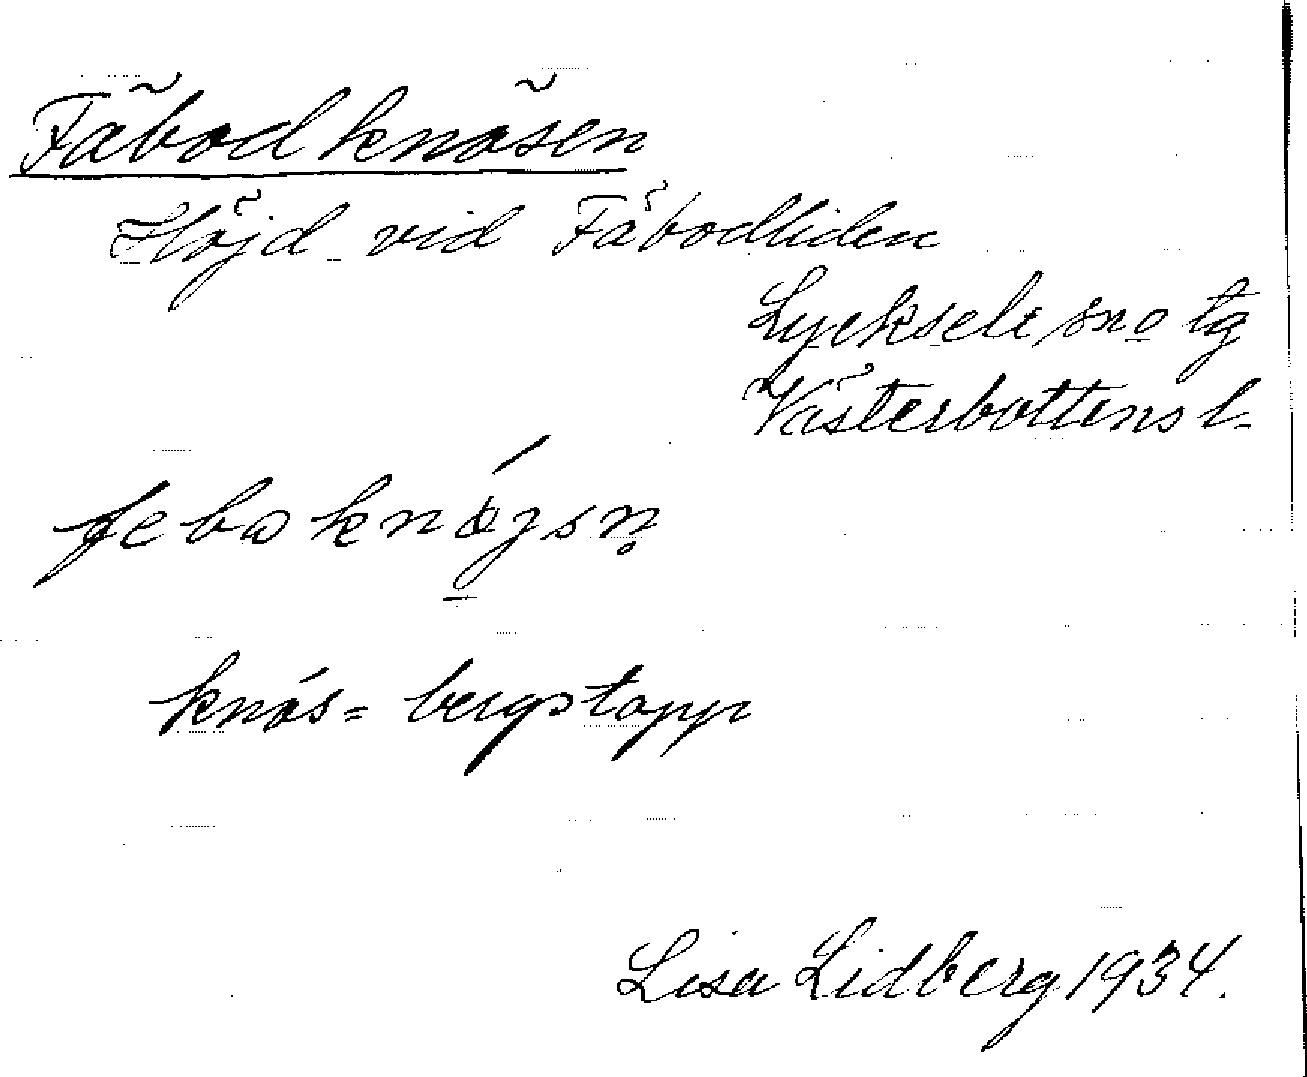 Fäbodknösen
Höjd vid Fäbodliden
Lycksele sn o tg
Västerbottens l.
knös = bergstopp
Lisa Lidberg 1934.